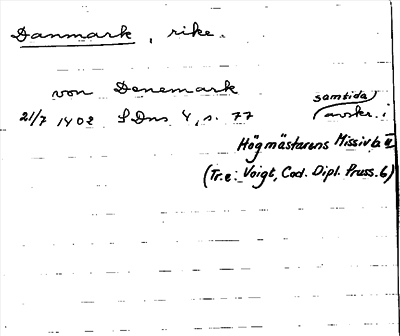 Danmark, rike.
von Denemark
21/7 1402 SDns 4, s. 77 (samtida) avskr. i
Högmästarens Missivb. II
(Tr. e: Voigt, Cod. Dipl. Pruss. 6)